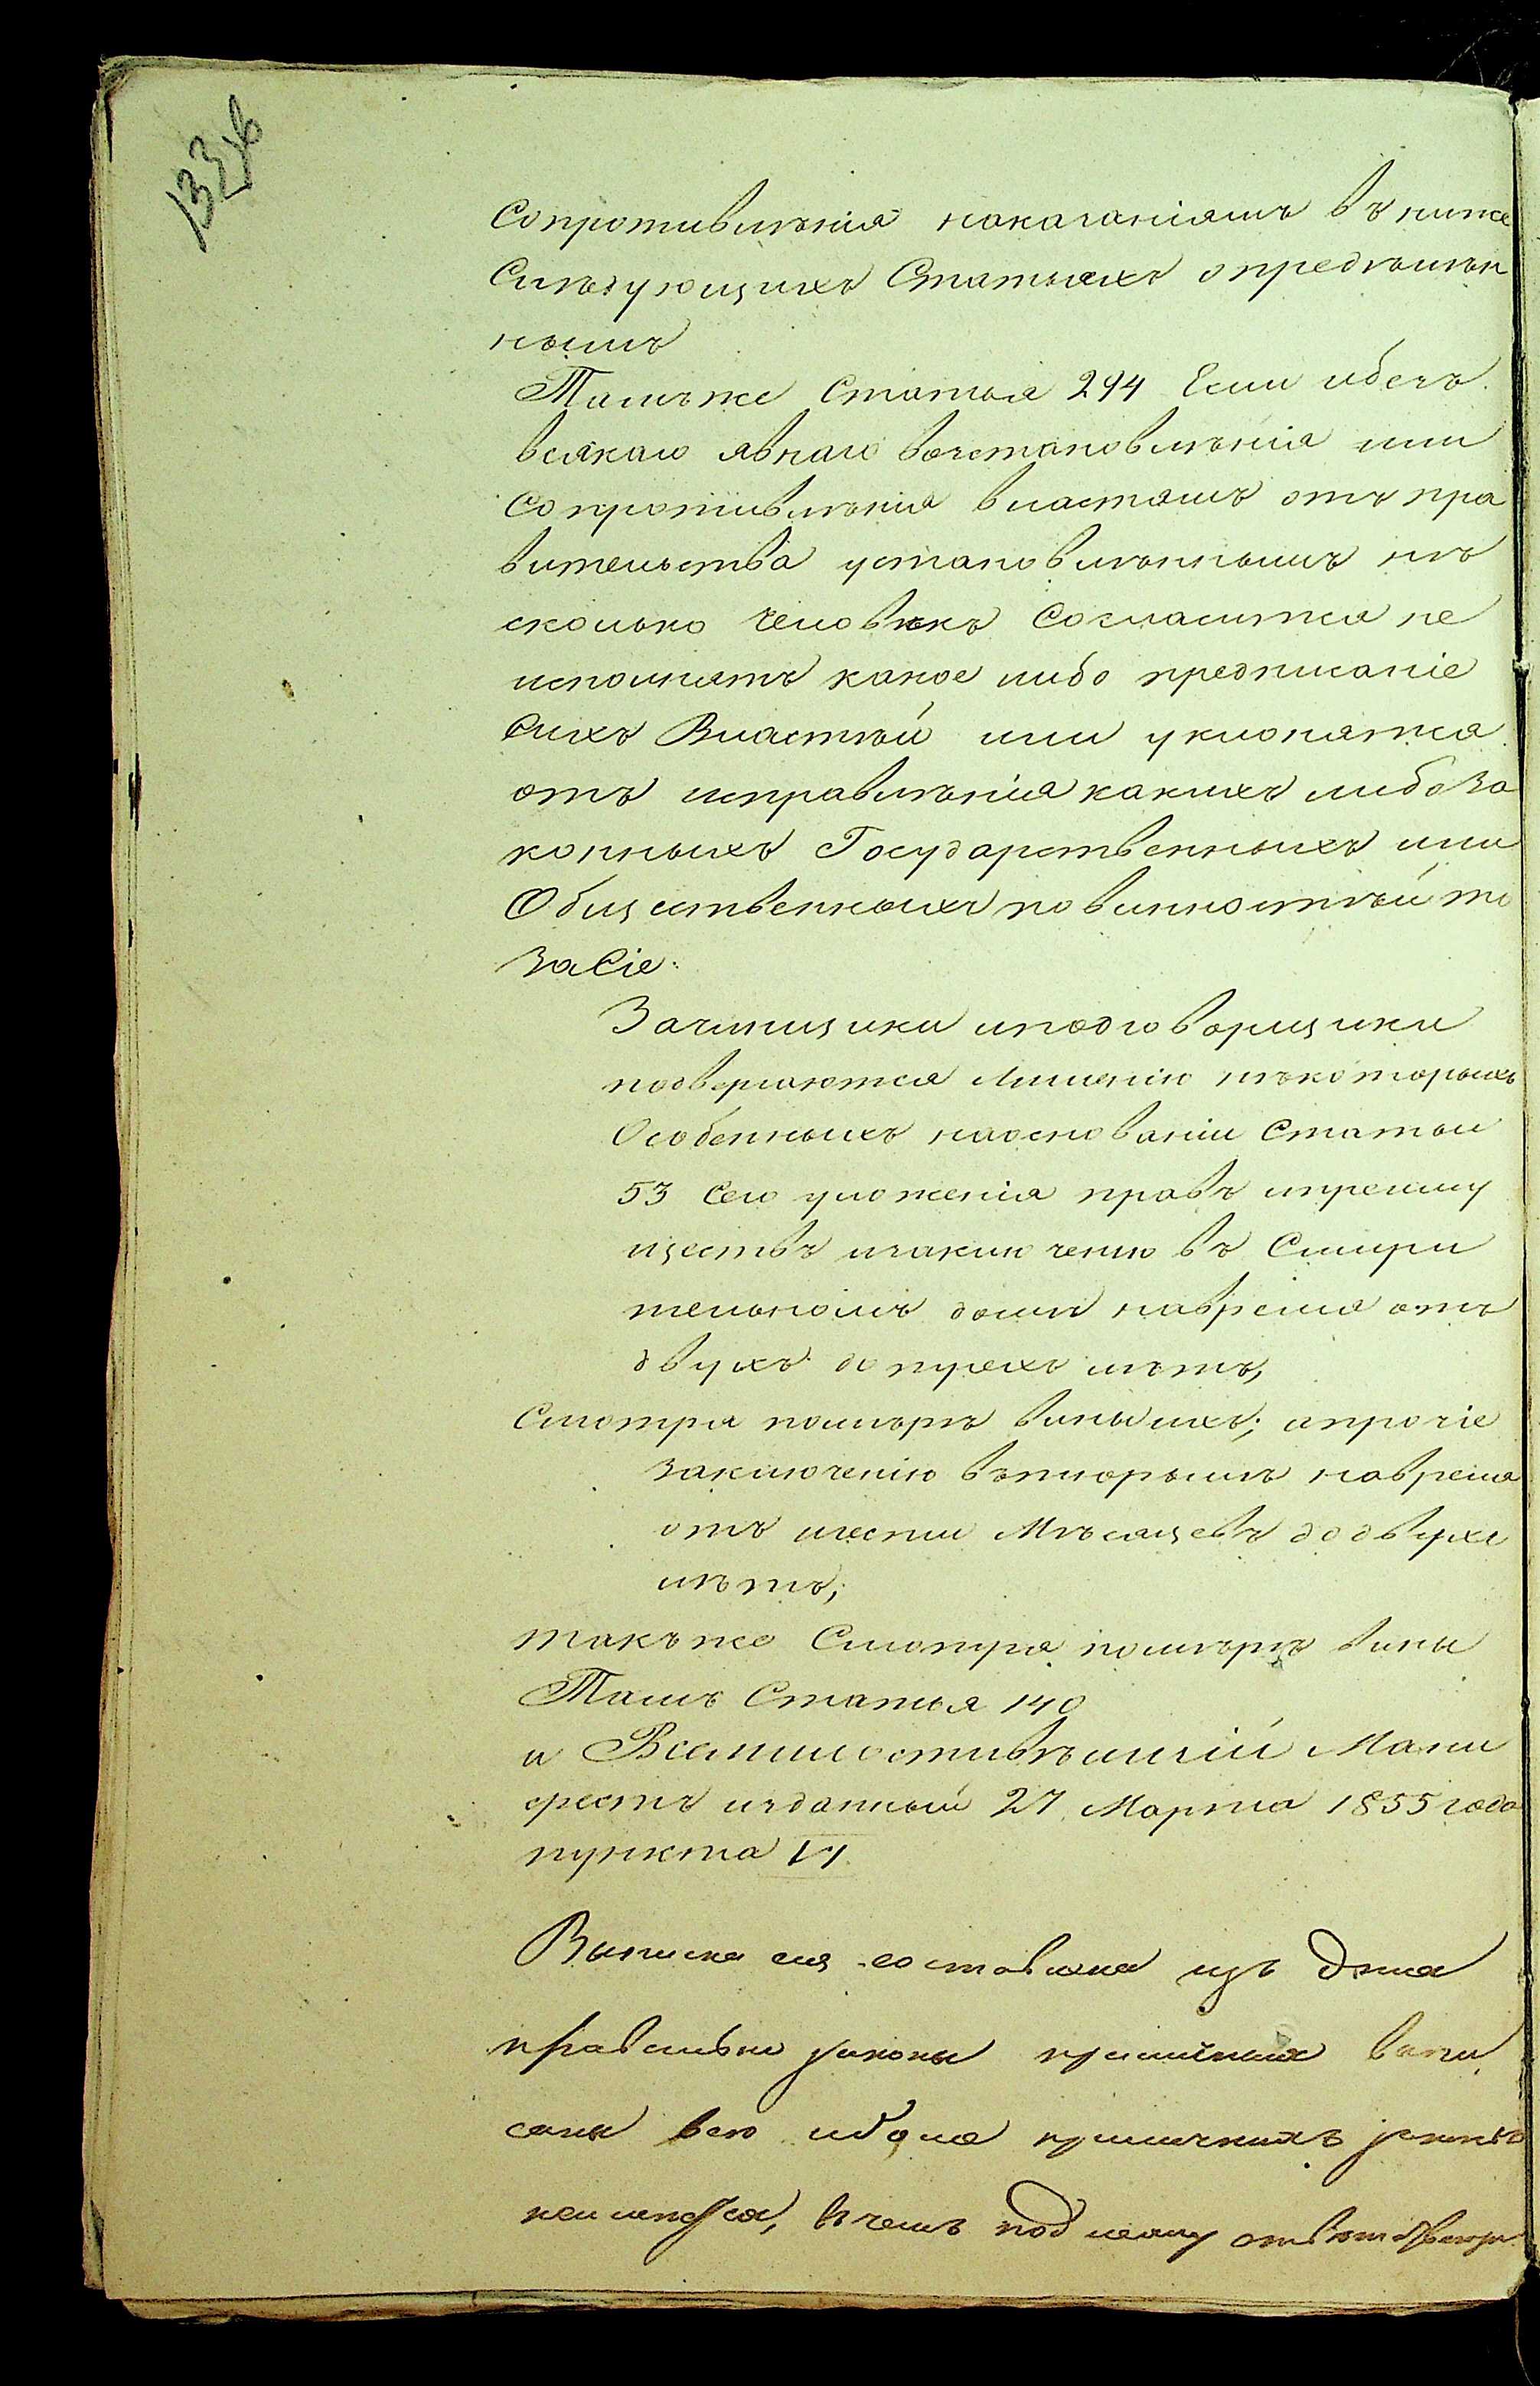 133 об
Сопротивлѣнія наказаніямъ въ ниже
Слѣдующихъ Статьяхъ опредѣлѣн
нымъ
Тамъ же Статья 294 Если и безъ
всякаго явнаго возстановлѣнія или
сопротивлѣнія властямъ отъ пра
вительства установлѣннымъ нѣ
сколько человѣкъ Согласится не
исполнять какое либо предписаніе
Сихъ Властѣй или уклонятся
отъ исправлѣнія какихъ либо За
конныхъ Государственныхъ или
Общественныхъ повинностѣй то
За Сіе:
Зачинщики и подговорщики
подвергаются Лишенію нѣкоторыхъ
Особенныхъ на основаніи Статьи
53 Сего уложенія правъ и преиму
ществъ и заключенію въ Смири
тельномъ домѣ на время отъ
двухъ до трехъ лѣтъ,
Смотря по мѣрѣ вины ихъ; а прочіе
заключенію въ тюрьмѣ на время
отъ шести Мѣсяцевъ до двухъ
лѣтъ;
такъ же Смотря по мѣрѣ вины
Тамъ Статья 140
и Всемилостивѣйшій Мани
фестъ изданный 27 Марта 1855 года
пункта VI
Выписка сія составлена изъ Дѣла
правильно законы приличныя выпи
саны всѣ и болѣе приличныхъ законовъ
не имѣется, въ чемъ подлежу